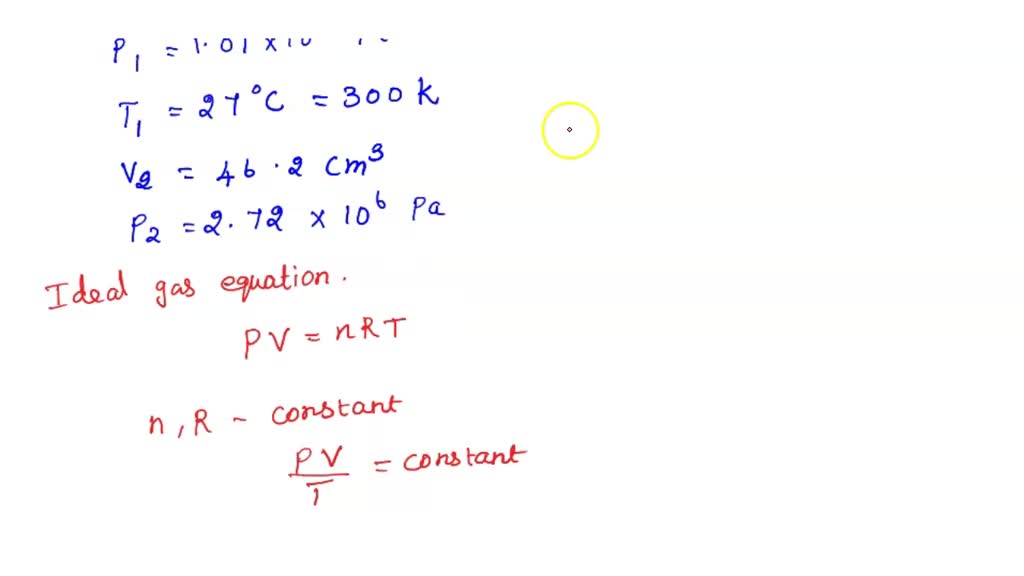 P₁ = 1.01 × 10
T₁ = 27°C = 300 k
V₂ = 46.2 cm³
P₂ = 2.72 × 10⁶ Pa
Ideal gas equation.
PV = nRT
n, R - constant
PV/T = constant